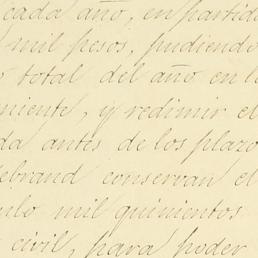 cada año, en partida
mil pesos, pudiendo
total del año en l
niente, y redimir el
da antes de los plazo
ebrand conservan el
ulo mil quinientos
civil, para poder